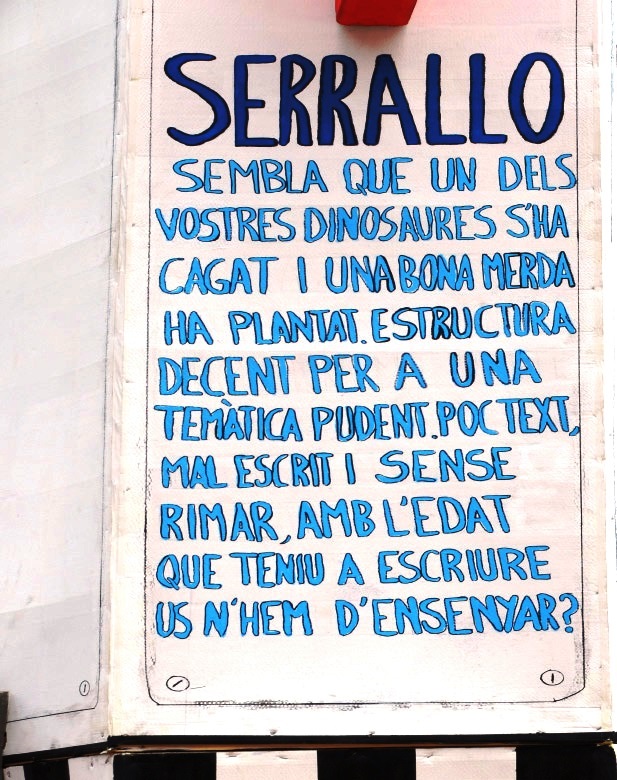 SERRALLO
SEMBLA QUE UN DELS
VOSTRES DINOSAURES S'HA
CAGAT I UNA BONA MERDA
HA PLANTAT. ESTRUCTURA
DECENT PER A UNA
TEMÀTICA PUDENT. POC TEXT,
MAL ESCRIT I SENSE
RIMAR, AMB L'EDAT
QUE TENIU A ESCRIURE
US N'HEM D'ENSENYAR?